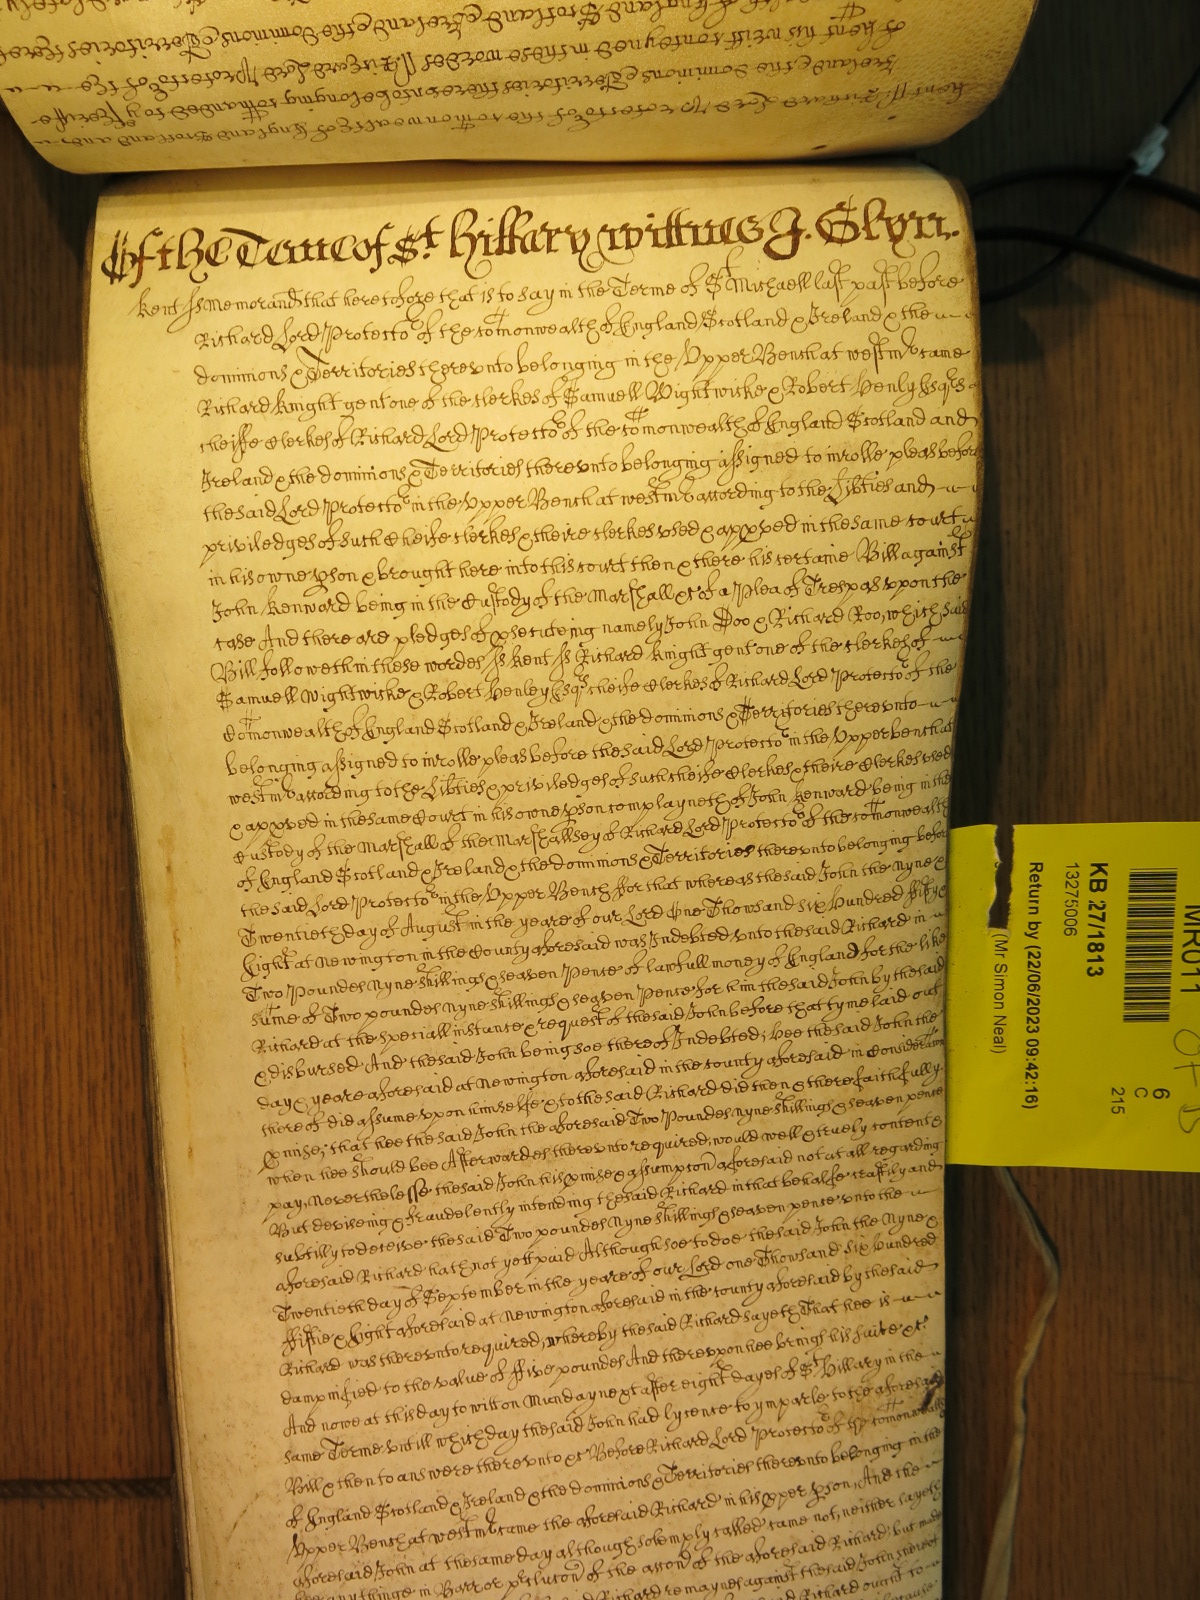 Of the Terme of St Hillary wittnes J. Glyn.
Kent ss Memorand that heretofore that is to say in the Terme of St Michaell last past before
Richard Lord Protector of the Comonwealth of England Scotland & Ireland & the
dominions & Territories therevnto belonging in the Vpper Bench at westmr came
Richard Knight gent one of the Clerkes of Samuell Wightwicke & Robert Henly Esqrs
cheiffe Clerkes of Richard Lord Protector of the Comonwealth of England Scotland and
Ireland & the dominions & Territories therevnto belonging assigned to inrolle pleas before
the said Lord Protector in the Vpper Bench at westmr according to the Libties and
priviledges of such Cheife Clerkes & theire Clerkes vsed & appved in the same Court
in his owne pson & brought here into this Court then & there his certaine Bill against
John Kenward being in the Custody of the Marshall &c of a Plea of Trespas vpon the
case And there are pledges of psecuteing namely John Doo & Richard Roo, which said
Bill followeth in these wordes ss Kent ss Richard Knight gent one of the Clerkes of
Samuell Wightwicke & Robert Henley Esqs cheife Clerkes of Richard Lord Protector of the
Comonwealth of England Scotland & Ireland & the dominions & Territories therevnto
belonging assigned to inrolle pleas before the said Lord Protector in the Vpper bench at
westmr according to the Libties & priviledges of such cheife Clerkes & theire Clerkes vsed
& appved in the same Court in his owne pson complayneth of John Kenward being in the
Custody of the Marshall of the Marshallsey of Richard Lord Protector of the Comonwealth
of England Scotland & Ireland & the dominions & Territories therevnto belonging before
the said Lord Protector in the Vpper Bench ffor that whereas the said John the Nyne &
Twentieth day of August in the yeare of our Lord One Thowsand six hundred fifty &
Eight at Newington in the County aforesaid was Indebted vnto the said Richard in
Two Poundes Nyne shillings & seaven Pence of lawfull money of England for the like
sume of Two poundes Nyne shillings & seaven Pence for him the said John by the said
Richard at the speciall instance & request of the said John before that tyme laid out
& disbursed And the said John being soe thereof Indebted; hee the said John the
day & yeare aforesaid at Newington aforesaid in the County aforesaid in Consideracon
thereof did assume vpon himselfe & to the said Richard did then & there faithfully
pmise; that hee the said John the aforesaid Two Poundes Nyne shillings & seaven pence
when hee should bee Afterwardes therevnto required, would well & truely content &
pay, Neverthelesse the said John his pmise & assumpcon aforesaid not at all regarding
But deviseing & fraudelently intending the said Richard in that behalfe craftily and
subtilly to deceive the said Two poundes Nyne shillings & seaven pence vnto the
aforesaid Richard hath not yett paid Although soe to doe the said John the Nyne &
Twentieth day of September in the yeare of our Lord one Thowsand six hundred
ffiftie & Eight aforesaid at Newington aforesaid in the County aforesaid by the said
Richard was therevnto required, whereby the said Richard sayeth That hee is
dampnified to the value of ffive poundes And therevpon hee brings his suite &c.
And nowe at this day to witt on Munday next after eight dayes of St Hillary in the
same Terme vntill which day the said John had lycence to ymparle to the aforesaid
Bill & then to answere therevnto &c Before Richard Lord Protector of the Comonwealth
of England Scotland & Ireland & the dominions & Territories therevnto belonging in the
Vpper Bench at westmr came the aforesaid Richard in his pper pson, And the
aforesaid John at the same day although solemply called came not, neither sayeth
hee any thinge in Barr or pclucon of the accon of the aforesaid Richard; but made
Richard remaynes against the said John thereof
said Richard ought to
MR011
KB 27/1813
13275006
6
C
215
Return by (22/06/2023 09:42:16)
(Mr Simon Neal)